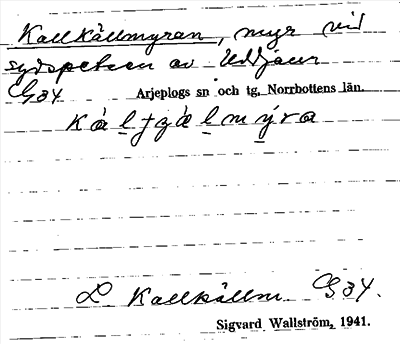 Kallkällmyran, myr vid
sydspetsen av Uddjaur
G34 Arjeplogs sn och tg, Norrbottens län.
Kallkällm G34.
Sigvard Wallström, 1941.